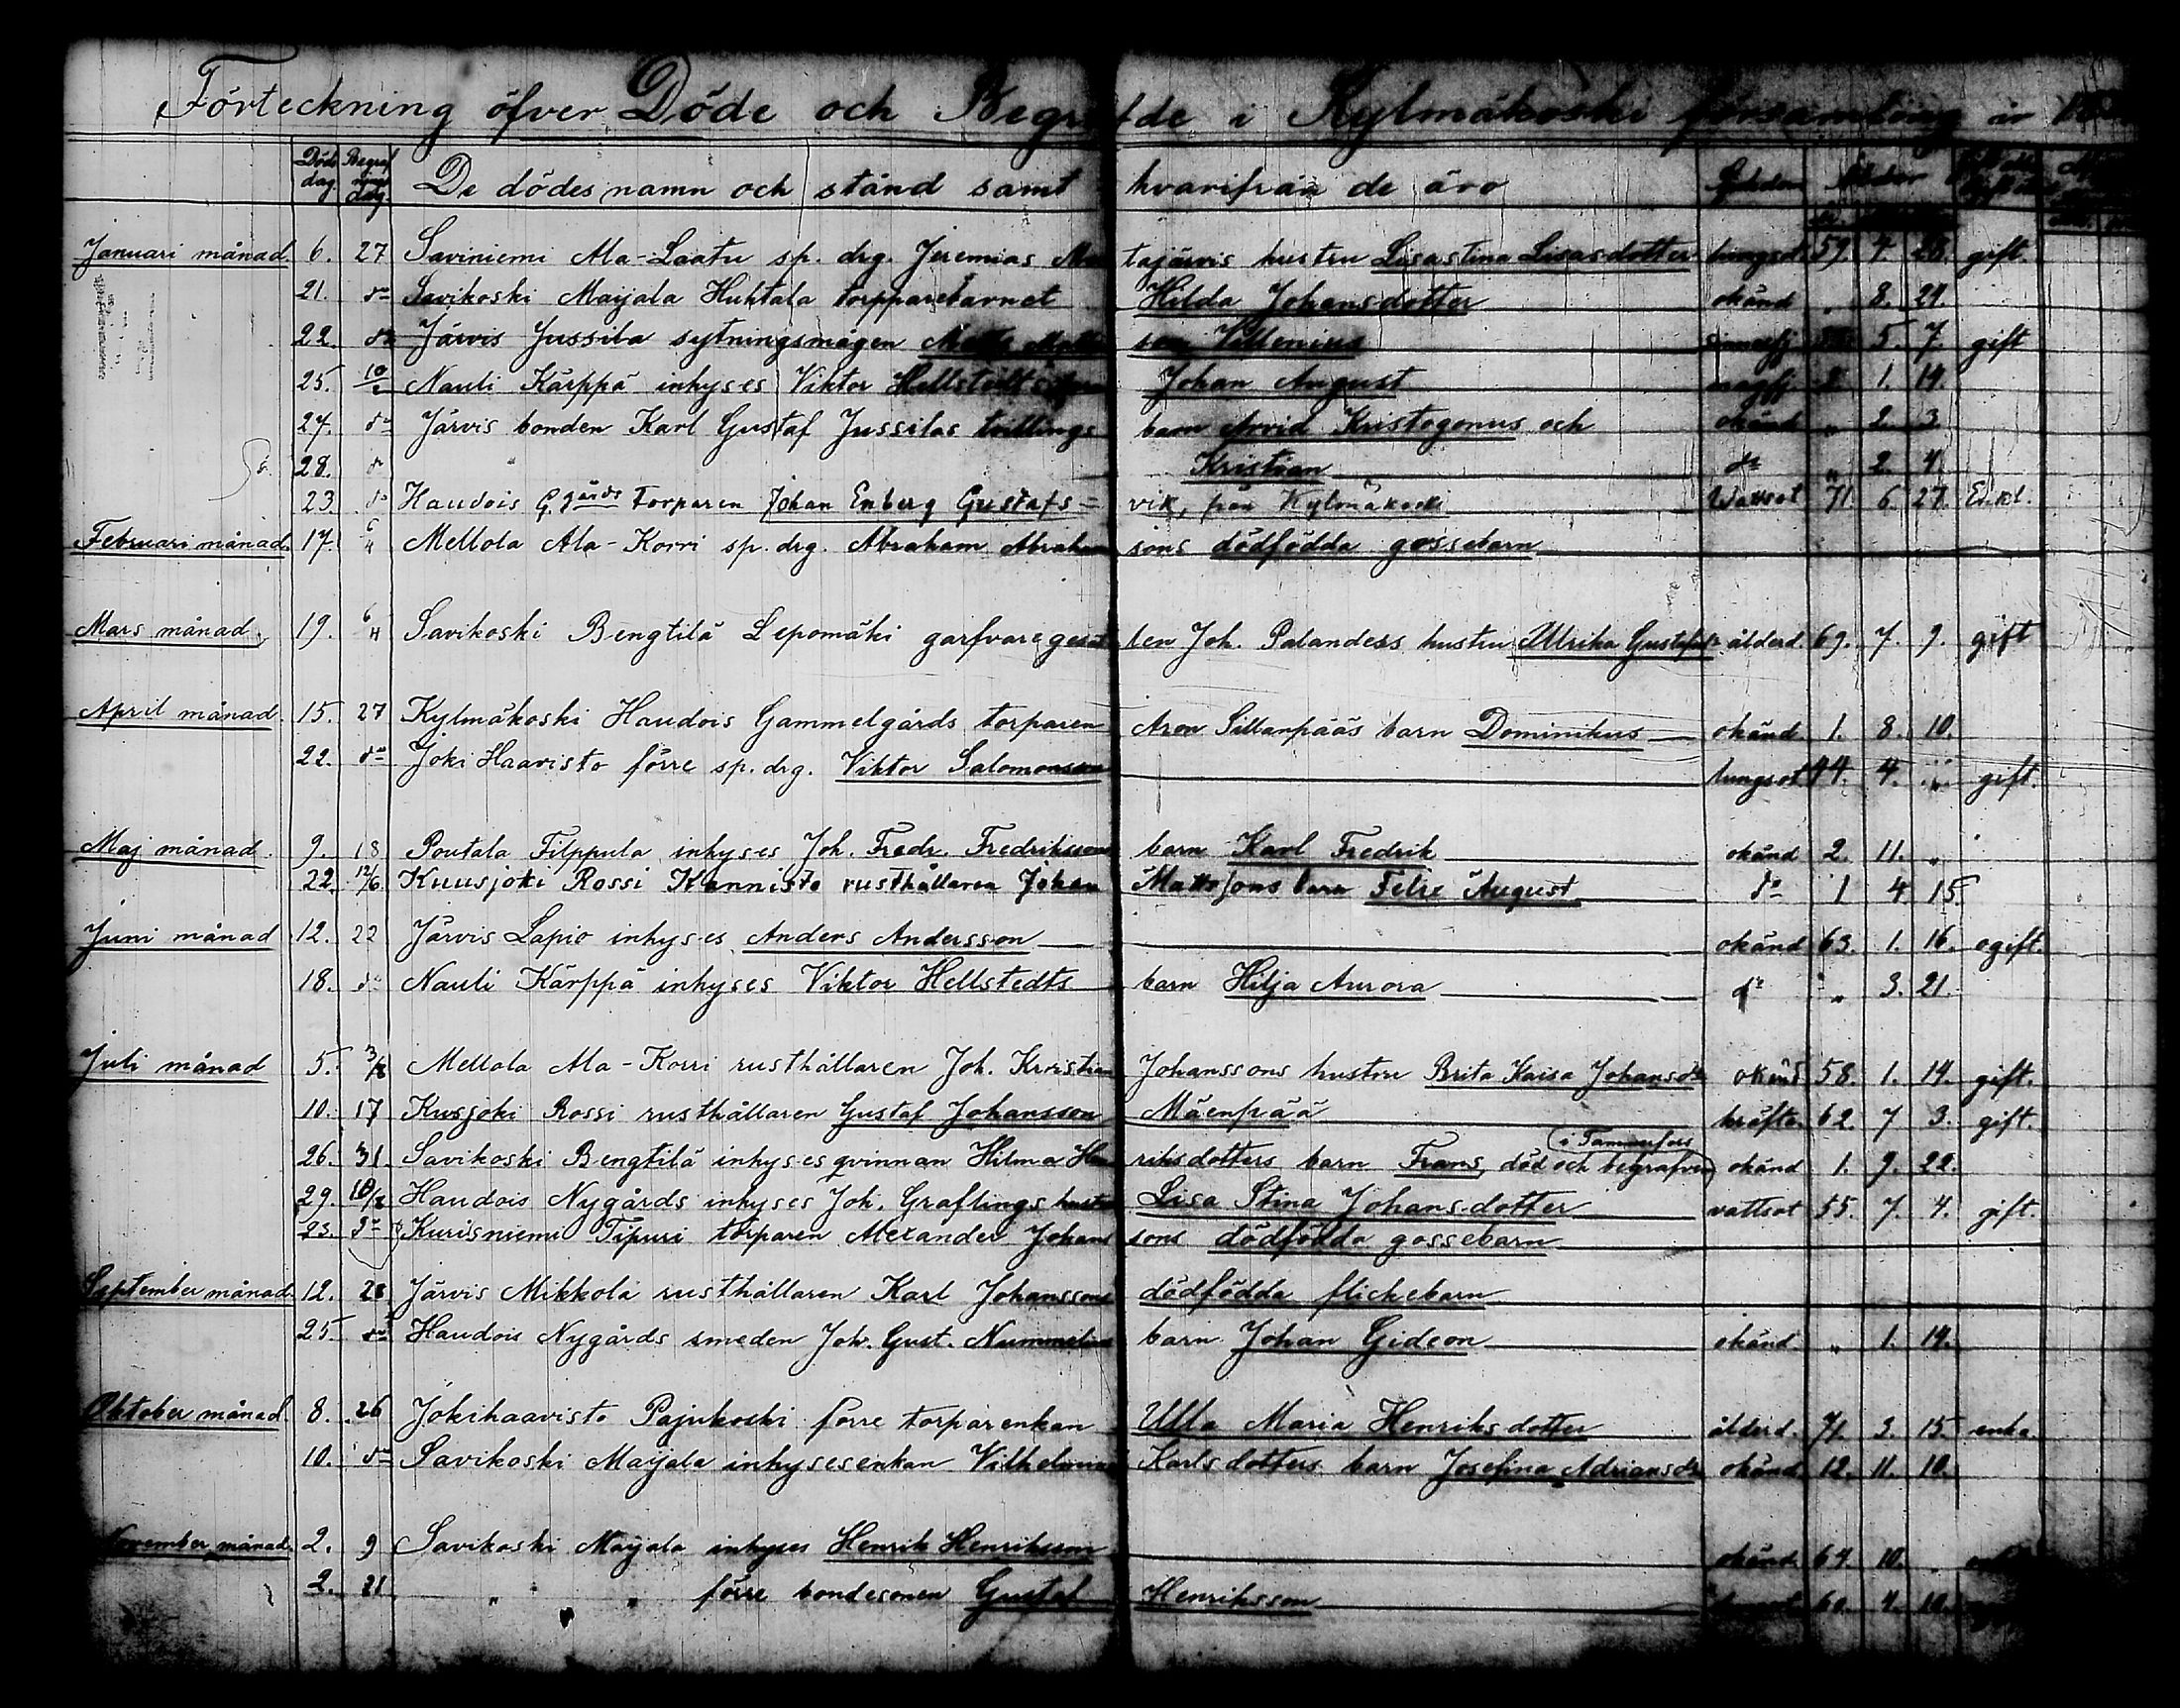 Förteckning öfver Döde och Begrafde i Kylmäkoski församling år
Döds dag. Begrafnings dag De dödes namn och stånd samt hvarifrån de äro Sjukdom Ålder
Januari månad. 6. 27 Saviniemi Ala-Laatu sp. drg. Jeremias Matajärvis hustru Lisastina Lisasdotter lungsot 59. 4. 28. gift.
21. do Savikoski Maijala Huhtala torpparebarnet Hilda Johansdotter okänd „ 8. 29.
22. do Järvis Jussila sytningsmågen son Villenius 5. 7. gift
25. 10/2 Nauli Kärppä inhyses Viktor Hellstedts Johan August magfj. 1. 19.
27. do Järvis bonden Karl Gustaf Jussilas tvillings barn Arvid Kristogonus och okänd „ 2. 3.
28. do Kristian do „ 2. 4.
23. do Haudois G.gårds Torparen Johan Enberg Gustafs= vik, från Kylmäkoski Wattsot 71. 6. 27. Enkl.
Februari månad. 17. 6/4 Mellola Ala-Korri sp. drg. Abraham Abrahamsons dödfödda gossebarn
Mars månad. 19. 6/4 Savikoski Bengtilä Lepomäki garfvaregesällen Joh. Palanders hustru Ulrika Gustafsdr ålderd. 69. 7. 9. gift
April månad. 15. 27 Kylmäkoski Haudois Gammelgårds torparen Aron Sillanpääs barn Dominikus okänd. 1. 8. 10.
22. do Joki Haavisto förre sp. drg. Viktor Salomonsson lungsot 44. 4. „ gift.
Maj månad. 9. 18 Poutala Filppula inhyses Joh. Fredr. Fredriksson barn Karl Fredrik okänd 2. 11. „
22. 12/6 Kuusjoki Rossi Kannisto rusthållaren Johan Mattssons barn Felix August do 1 4 15.
Juni månad 12. 22 Järvis Lapio inhyses Anders Andersson okänd 63. 1. 16. ogift.
18. do Nauli Kärppä inhyses Viktor Hellstedts barn Hilja Aurora do „ 3. 21.
Juli månad 5. 3/8 Mellola Ala-Korri rusthållaren Joh. Kristian Johanssons hustru Brita Kaisa Johansdr okänd 58. 1. 19. gift.
10. 17 Kusjoki Rossi rusthållaren Gustaf Johansson Mäenpää kräfta. 62. 7 3. gift.
26. 31. Savikoski Bengtilä inhysesqvinnan Hilma Henriksdotters barn Frans, död och begrafven (i Tammerfors) okänd 1. 9. 22.
29. 10/8 Haudois Nygårds inhyses Joh. Graflings hustru Lisa Stina Johansdotter vattsot 55. 7. 4. gift.
23. do Kurisniemi Tipuri torparen Alexander Johanssons dödfödda gossebarn
September månad. 12. 28 Järvis Mikkola rusthållaren Karl Johanssons dödfödda flickebarn
25. do Haudois Nygårds smeden Joh. Gust. Nummelins barn Johan Gideon okänd. „ 1. 19.
Oktober månad. 8. 26 Jokihaavisto Pajukoski förre torparenkan Ulla Maria Henriksdotter ålderd. 71. 3. 15. enka.
10. do Savikoski Maijala inhysesenkan Vilhelmina Karlsdotters barn Josefina Adriansdr okänd 12. 11. 10.
November månad. 2. 9 Savikoski Maijala inhyses Henrik Henriksson okänd. 64. 10.
2. 21 „ „ förre bondesonen Gustaf Henriksson 60.